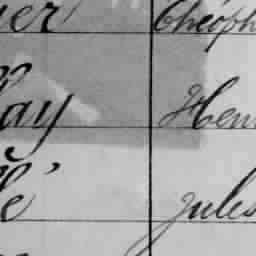 er Théoph
ay Hen
é Jules